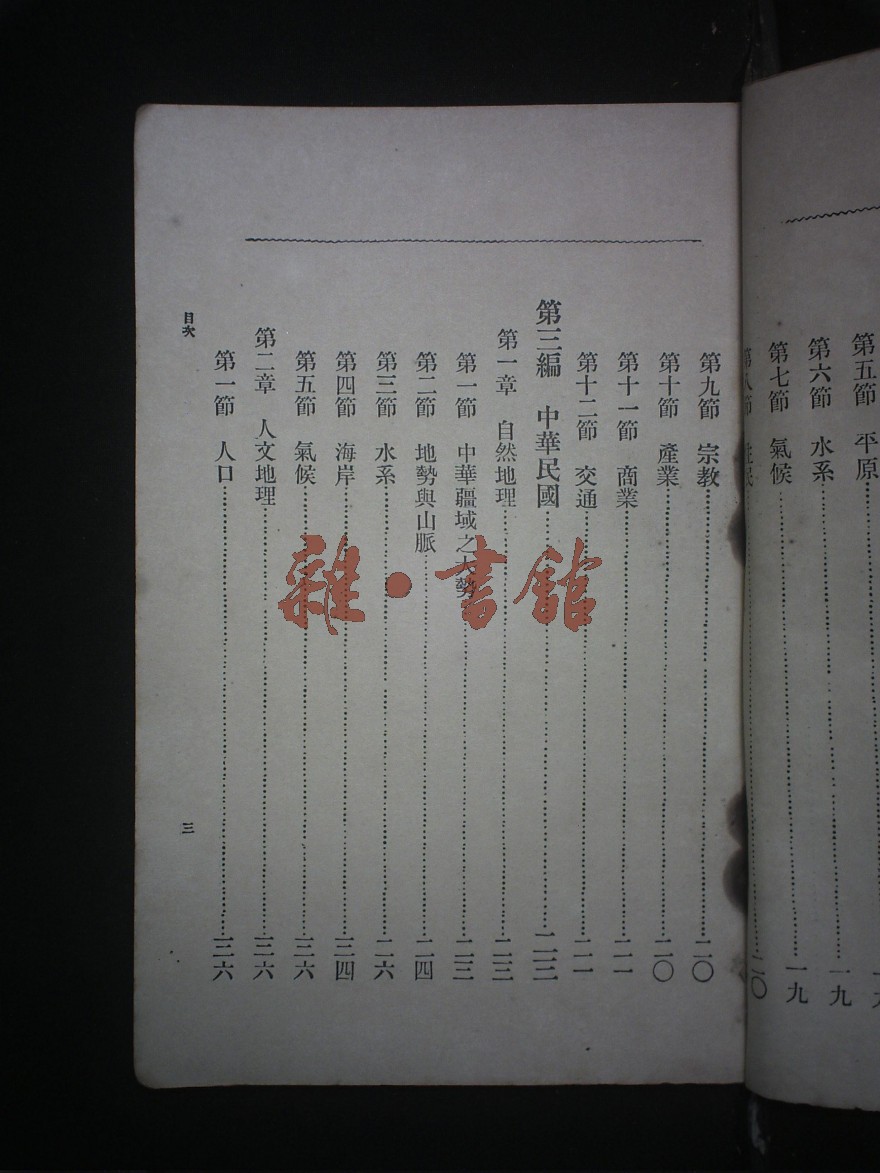 第五節　平原
第六節　水系……一九
第七節　氣候……一九
第八節　住民……二〇
第九節　宗教……二〇
第十節　產業……二〇
第十一節　商業……二一
第十二節　交通……二一
第三編　中華民國……二三
第一章　自然地理……二三
第一節　中華疆域之大勢……二三
第二節　地勢與山脈……二四
第三節　水系……二六
第四節　海岸……三四
第五節　氣候……三六
第二章　人文地理……三六
第一節　人口……三六
目次
三
雜·書館